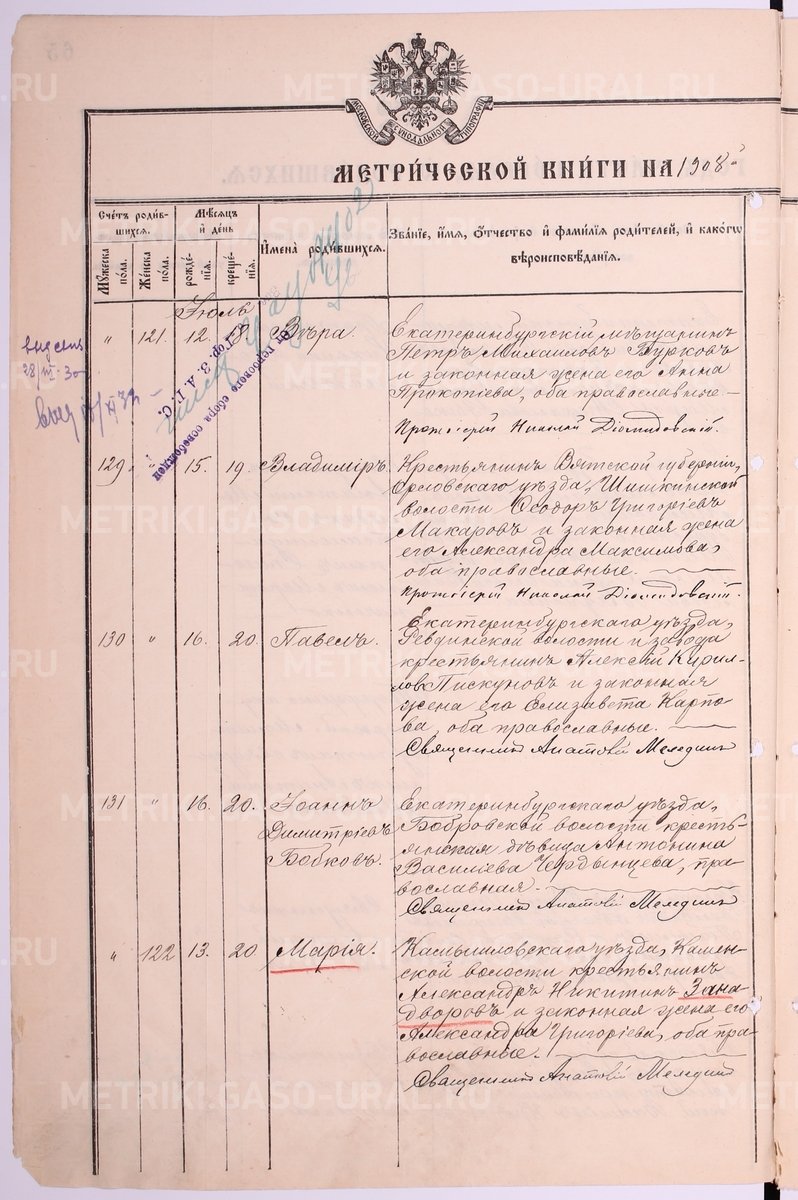 МОСКОВСКОЙ СѴНОДАЛЬНОЙ ТИПОГРАФІИ
МЕТРИ́ЧЕСКОЙ КНИ́ГИ НА 1908 г
Сче́тъ роди́в-
шихся.
Мѣ́сяцъ
и҆ де́нь
Мꙋ́жеска по́ла.
Же́нска по́ла.
рожде́-
нїѧ.
креще́-
нїѧ.
И҆мена̀ роди́вшихсѧ.
Зва́нїе, и҆́мѧ, ѻ҆́тчество и҆ фами́лїѧ роди́телей, и҆ како́гѡ
вѣроисповѣ́данїѧ.
Іюль
" 121. 12. Вѣра.
Екатеринбургскій мѣщанинъ
Петръ Михаиловъ Бурковъ
и законная жена его Анна
Прокопіева, оба православные.
Протоіерей Николай Діомидовскій.
28/III-30
От гербового сбора освобожден
Гор. З.А.Г.С.
129 " 15. 19. Владиміръ.
Крестьянинъ Вятской губерніи,
Орловскаго уѣзда, Шишкинской
волости Ѳеодоръ Григоріевъ
Макаровъ и законная жена
его Александра Максимова,
оба православные.
Протоіерей Николай Діомидовскій.
130 " 16. 20. Павелъ.
Екатеринбургскаго уѣзда,
Ревдинской волости и завода
крестьянинъ Алексѣй Кирил-
ловъ Пискуновъ и законная
жена его Елизавета Карпо-
ва, оба православные.
Священникъ Анатолій Меледин
131 " 16. 20. Іоаннъ
Димитріевъ
Бобковъ.
Екатеринбургскаго уѣзда,
Бобровской волости кресть-
янская дѣвица Антонина
Василіева Чердынцева, пра-
вославная.
Священникъ Анатолій Меледин
" 122 13. 20 Марія.
Камышловскаго уѣзда, Камен-
ской волости крестьянинъ
Александръ Никитинъ Зана-
дворовъ и законная жена его
Александра Григоріева, оба пра-
вославные.
Священникъ Анатолій Меледин
METRIKI.GASO-URAL.RU